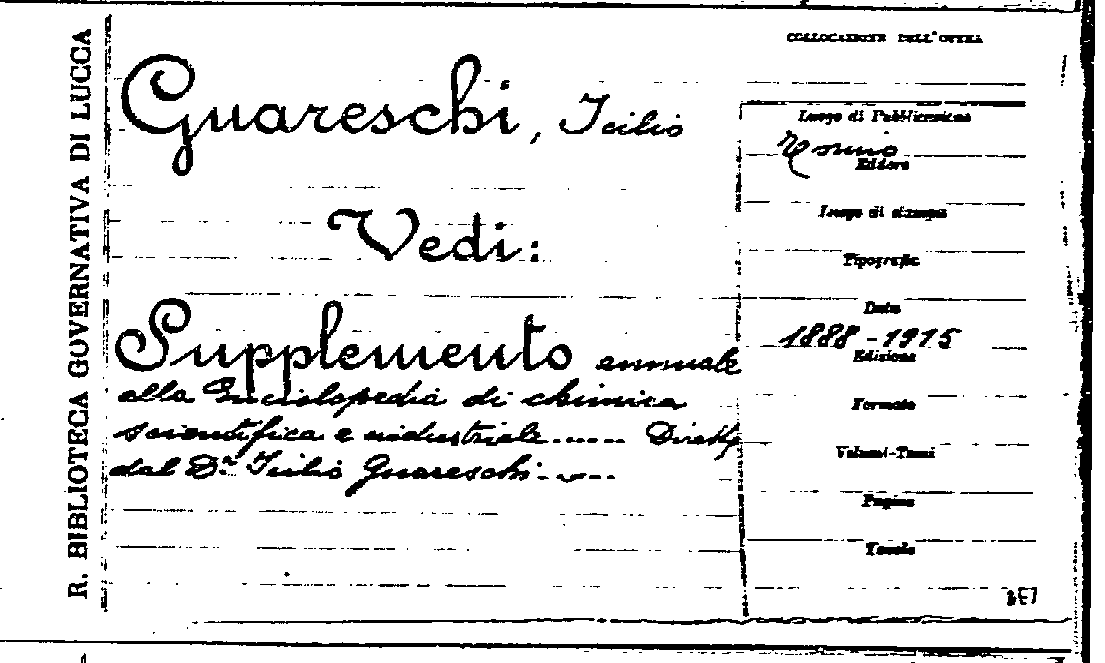 R. BIBLIOTECA GOVERNATIVA DI LUCCA
Guareschi, Icilio
Vedi:
Supplemento annuale
alla Enciclopedia di chimica
scientifica e industriale..... Diretto
dal Dr. Icilio Guareschi...
COLLOCAZIONE DELL'OPERA
Luogo di Pubblicazione
Torino
Editore
Luogo di stampa
Tipografia
Data
1888-1915
Edizione
Formato
Volumi-Tomi
Pagine
Tavole